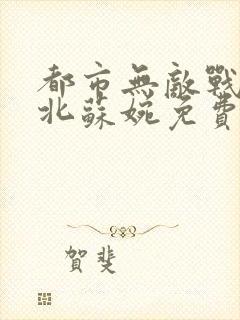 都市無敵戰
北蘇婉免費
賀斐